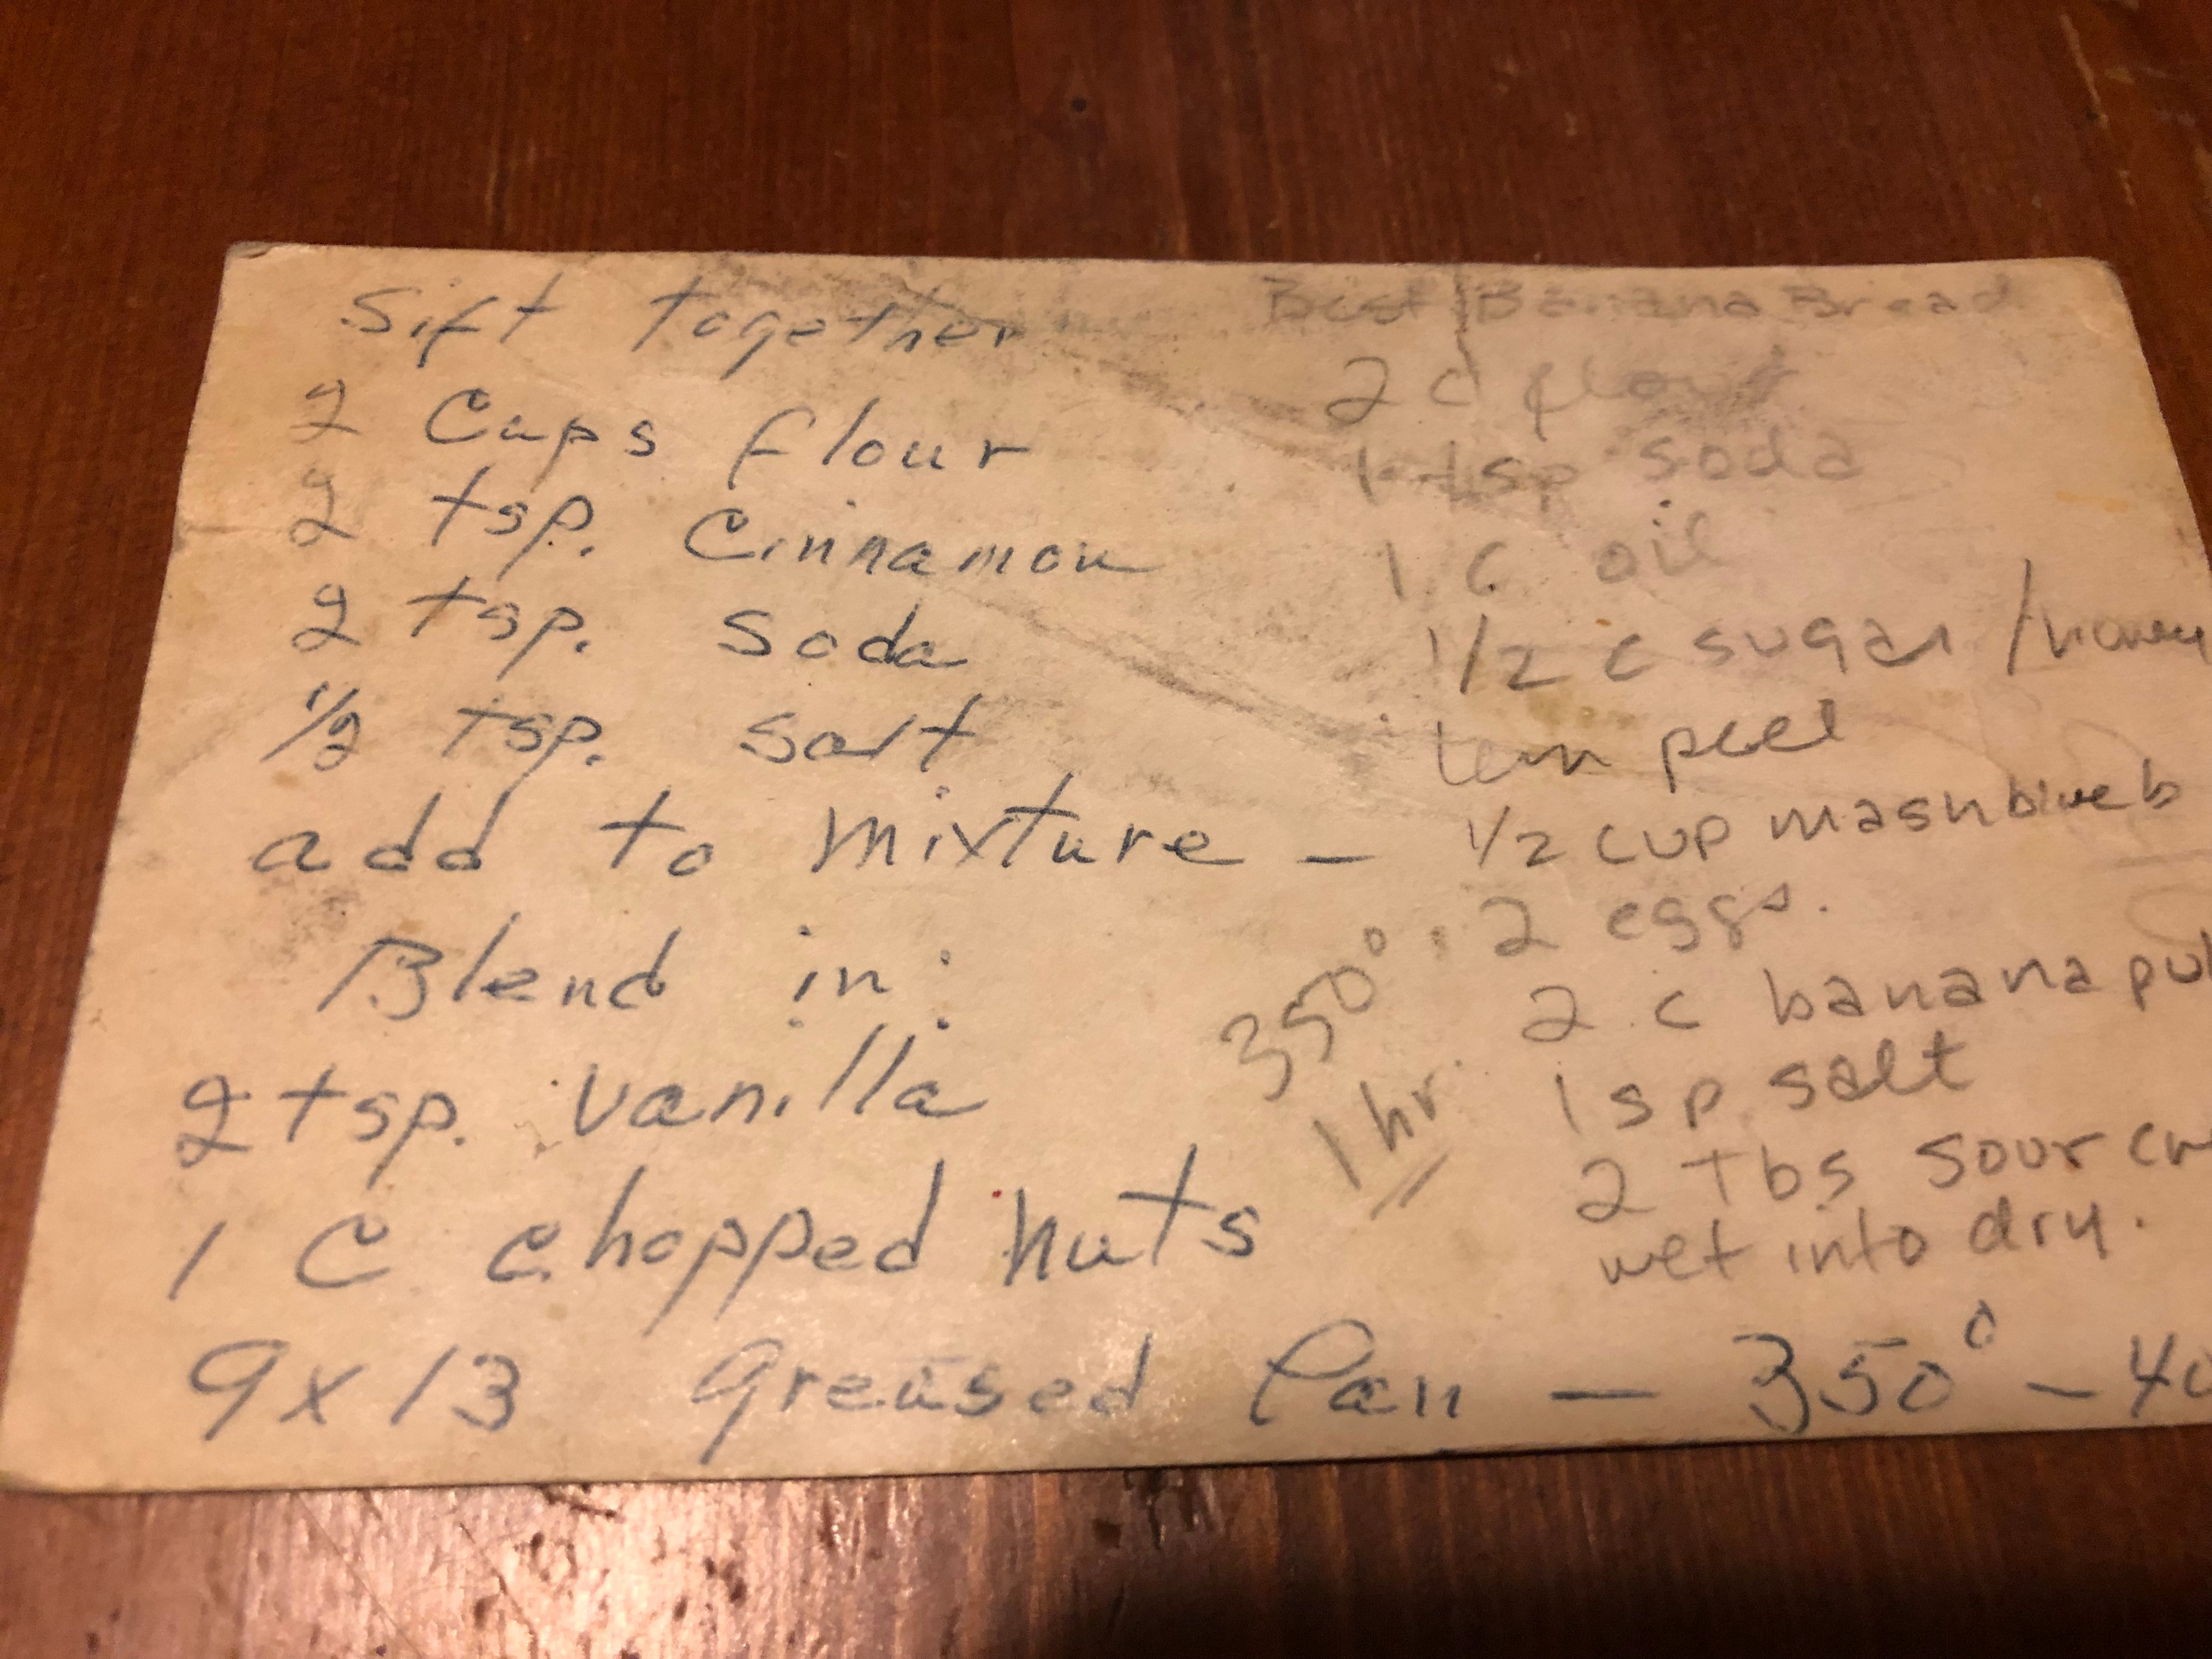 Sift together
2 Cups flour
2 tsp. Cinnamon
2 tsp. Soda
1/2 tsp. Salt
add to mixture –
Blend in:
2 tsp. Vanilla
1 C chopped nuts
9x13 Greased Pan – 350° – 40
Best Banana Bread
2 c flour
1 tsp soda
1 c oil
1/2 c sugar /honey
lem peel
1/2 cup mash blueb
2 eggs.
2 c banana pul
1 sp salt
2 Tbs sour cre
wet into dry.
350°
1 hr.